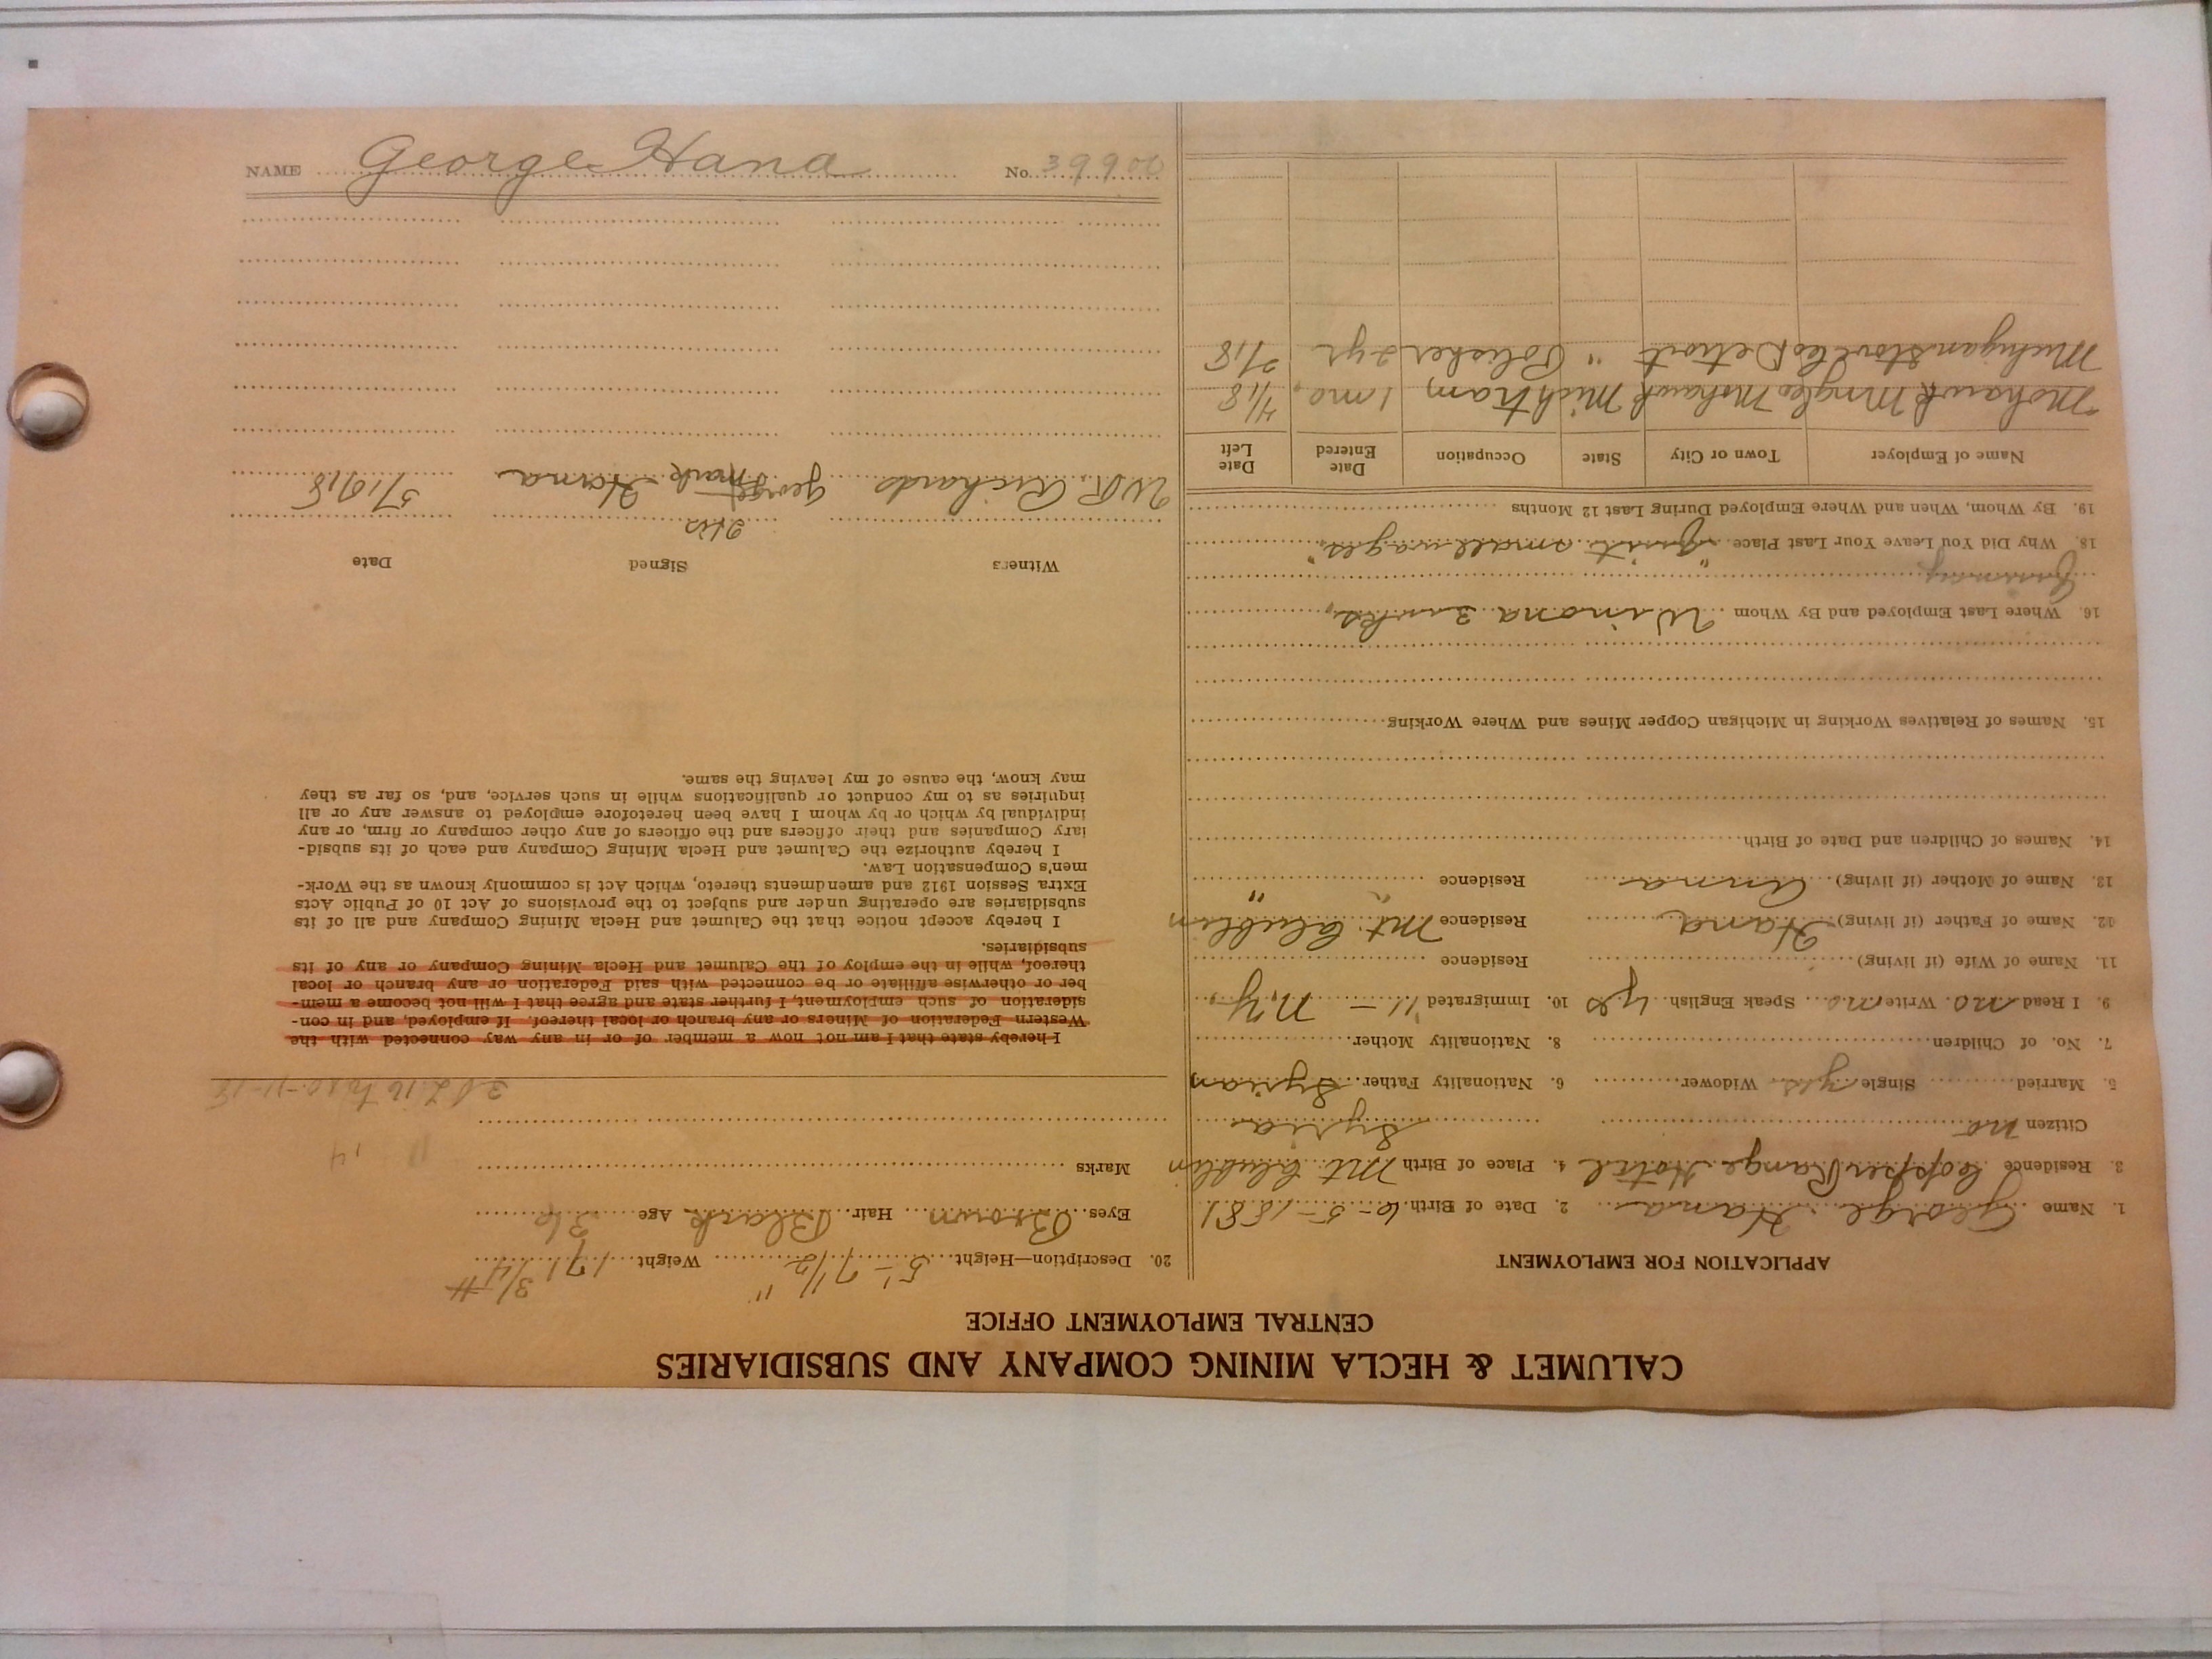 CALUMET & HECLA MINING COMPANY AND SUBSIDIARIES
CENTRAL EMPLOYMENT OFFICE
APPLICATION FOR EMPLOYMENT
1. Name George Hana 2. Date of Birth 6-5-1881
3. Residence Copper Range Hotel 4. Place of Birth Mt
Citizen no Syria
5. Married Single yes Widower 6. Nationality Father Syrian
7. No. of Children 8. Nationality Mother
9. I Read no Write no Speak English yes 10. Immigrated 11 - N.Y.
11. Name of Wife (if living) Residence
12. Name of Father (if living) Hana Residence Mt.
13. Name of Mother (if living) Anna Residence " "
14. Names of Children and Date of Birth
15. Names of Relatives Working in Michigan Copper Mines and Where Working
16. Where Last Employed and By Whom Winona 3 wks,
18. Why Did You Leave Your Last Place "quit" small wages"
19. By Whom, When and Where Employed During Last 12 Months
Name of Employer Town or City State Occupation Date Entered Date Left
Mohawk Mng Co Mohawk Mich Tram 1 mo, 4/18
Michigan Stove Co Detroit " Polisher 2 yr 2/18
20. Description—Height 5'-7 1/2" Weight 171 3/4#
Eyes Brown Hair Black Age 36
Marks
I hereby state that I am not now a member of or in any way connected with the
Western Federation of Miners or any branch or local thereof. If employed, and in con-
sideration of such employment, I further state and agree that I will not become a mem-
ber or otherwise affiliate or be connected with said Federation or any branch or local
thereof, while in the employ of the Calumet and Hecla Mining Company or any of its
subsidiaries.
I hereby accept notice that the Calumet and Hecla Mining Company and all of its
subsidiaries are operating under and subject to the provisions of Act 10 of Public Acts
Extra Session 1912 and amendments thereto, which Act is commonly known as the Work-
men's Compensation Law.
I hereby authorize the Calumet and Hecla Mining Company and each of its subsid-
iary Companies and their officers and the officers of any other company or firm, or any
individual by which or by whom I have been heretofore employed to answer any or all
inquiries as to my conduct or qualifications while in such service, and, so far as they
may know, the cause of my leaving the same.
Witness Signed Date
his
W.R. Richards George Hana 5/10/18
mark
NAME George Hana No. 39900